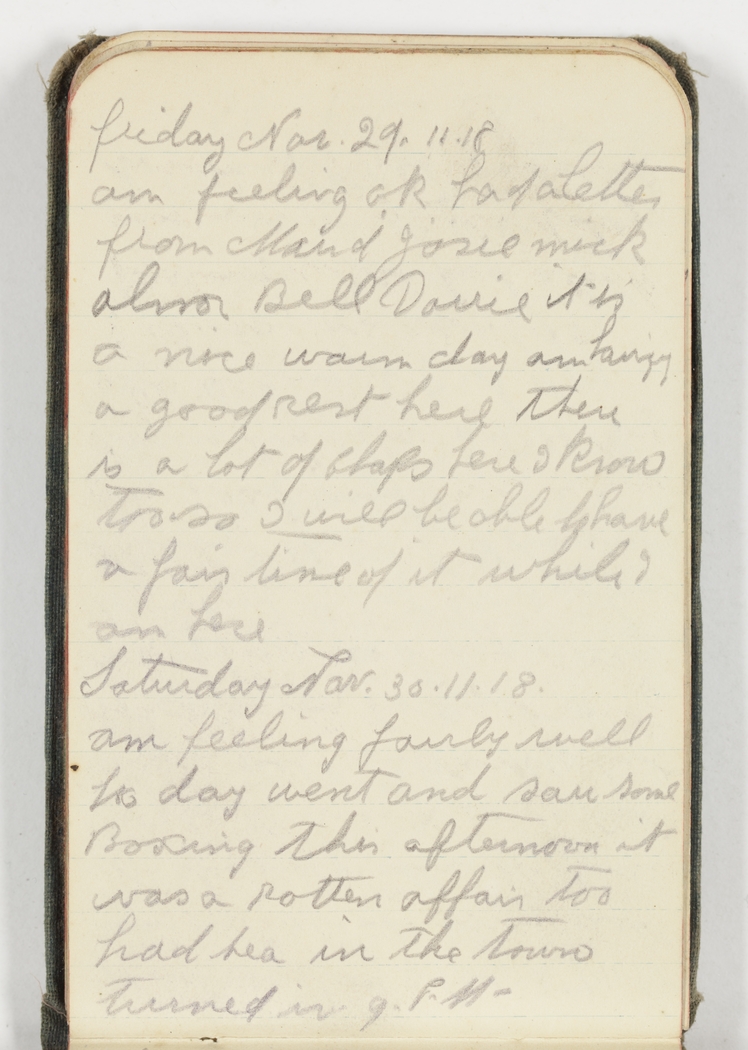 friday Nov. 29. 11.18
am feeling ok had a letter
from Maud Josie mick
also Bell Dorrie it is
a nice warm day am having
a good rest here there
is a lot of chaps here I know
too so I will be able to have
a fair time of it while I
am here
Saturday Nov. 30.11.18.
am feeling fairly well
to day went and saw some
Boxing this afternoon it
was a rotten affair too
had tea in the town
turned in 9. P.M-